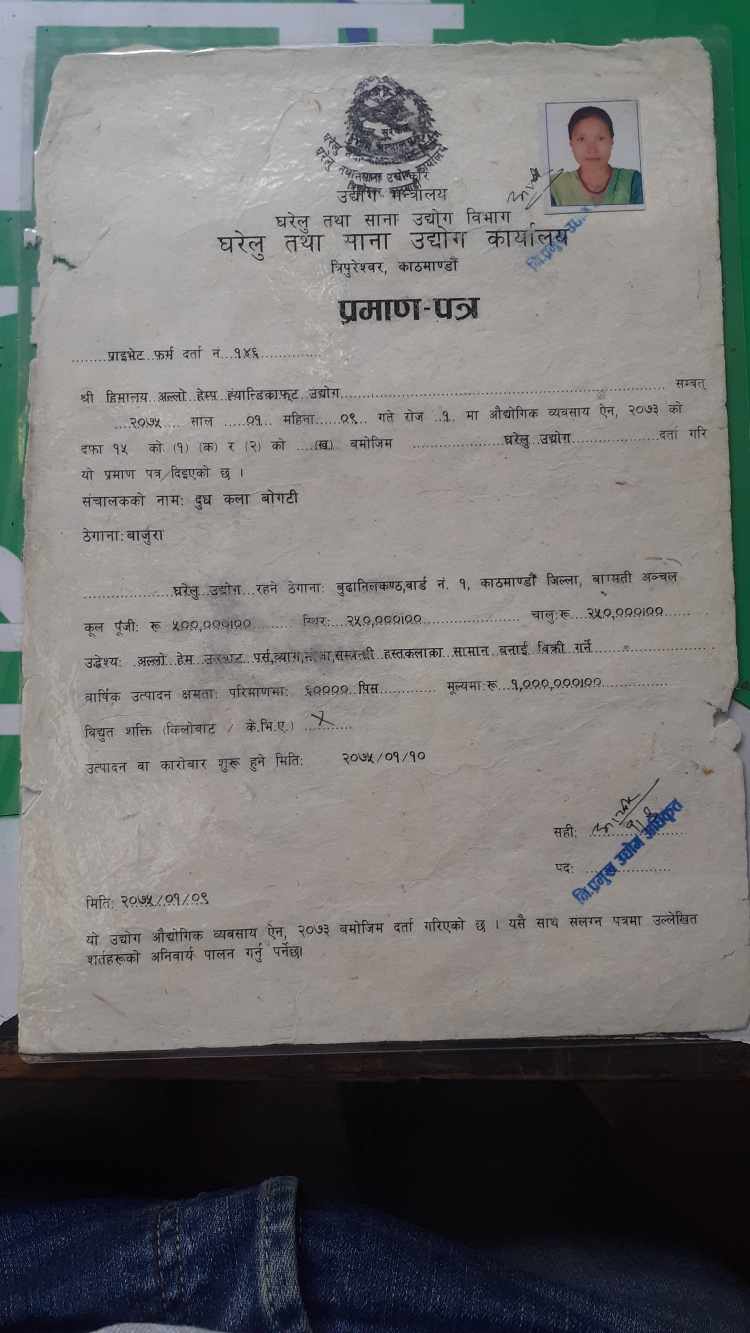 घरेलु तथा साना उद्योग कार्यालय
उद्योग मन्त्रालय
घरेलु तथा साना उद्योग विभाग
घरेलु तथा साना उद्योग कार्यालय
त्रिपुरेश्वर, काठमाण्डौं
नि.प्रमुख उद्योग
प्रमाण-पत्र
........प्राइभेट..फर्म दर्ता नं...१४६..............
श्री हिमालय..अल्लो..हेम्प..ह्यान्डिक्राफ्ट उद्योग.......................................................... सम्वत्
....२०७५.... साल .....०१.. महिना.....०९.. गते रोज ..१.. मा औद्योगिक व्यवसाय ऐन, २०७३ को
दफा १५ को (१) (क) र (२) को ....(ख).. बमोजिम ......................घरेलु..उद्योग.....................दर्ता गरि
यो प्रमाण पत्र दिइएको छ ।
संचालकको नाम: दुध कला बोगटी
ठेगाना: बाजुरा
......................घरेलु..उद्योग...रहने ठेगाना: बुढानिलकण्ठ,वार्ड नं. १, काठमाण्डौं जिल्ला, बाग्मती अञ्चल
कूल पूंजी: रू ५००,०००।००......... स्थिर:...२५०,०००।००....................... चालु:रू...२५०,०००।००......
उद्देश्य: अल्लो हेम्प पर्स,ब्याग, हस्तकलाका सामान बनाई बिक्री गर्ने
वार्षिक उत्पादन क्षमता: परिमाणमा: ६००००..पिस............. मूल्यमा:रू...१,०००,०००।००................
विद्युत शक्ति (किलोवाट / के.भि.ए.) ....X.......
उत्पादन वा कारोबार शुरू हुने मिति: २०७५/०१/१०
सही:
पद:
नि.प्रमुख उद्योग अधिकृत
मिति: २०७५/०१/०९
यो उद्योग औद्योगिक व्यवसाय ऐन, २०७३ बमोजिम दर्ता गरिएको छ । यसै साथ संलग्न पत्रमा उल्लेखित
शर्तहरूको अनिवार्य पालन गर्नु पर्नेछ।